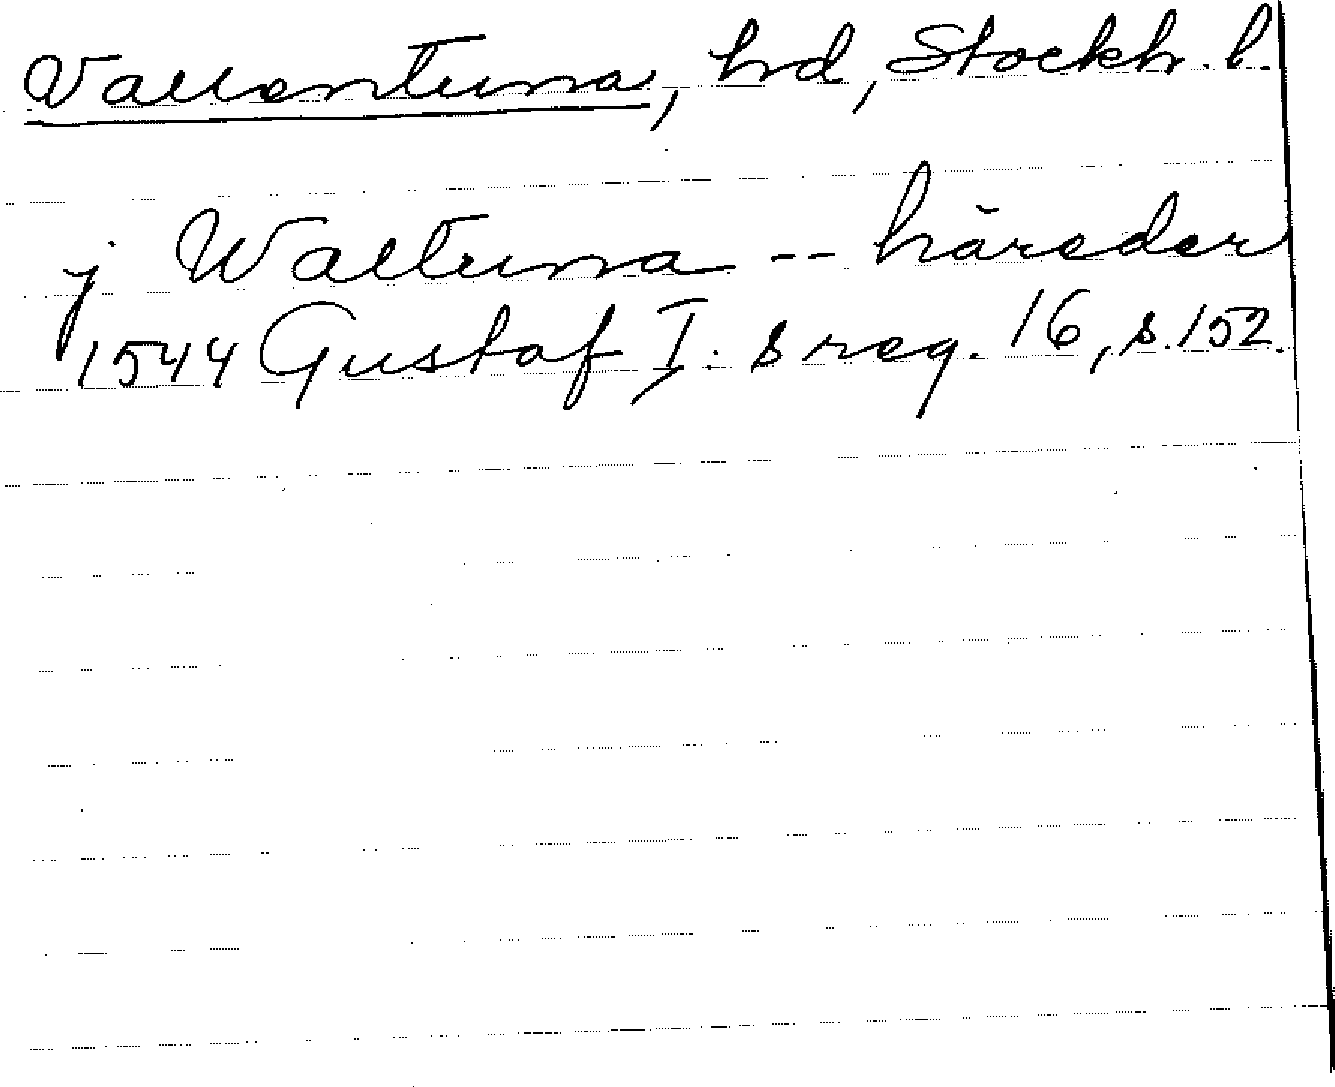 Vallentuna, hrd, Stockh. l.
j Waltuna -- häreder
1544 Gustaf I:s reg. 16, s. 152.